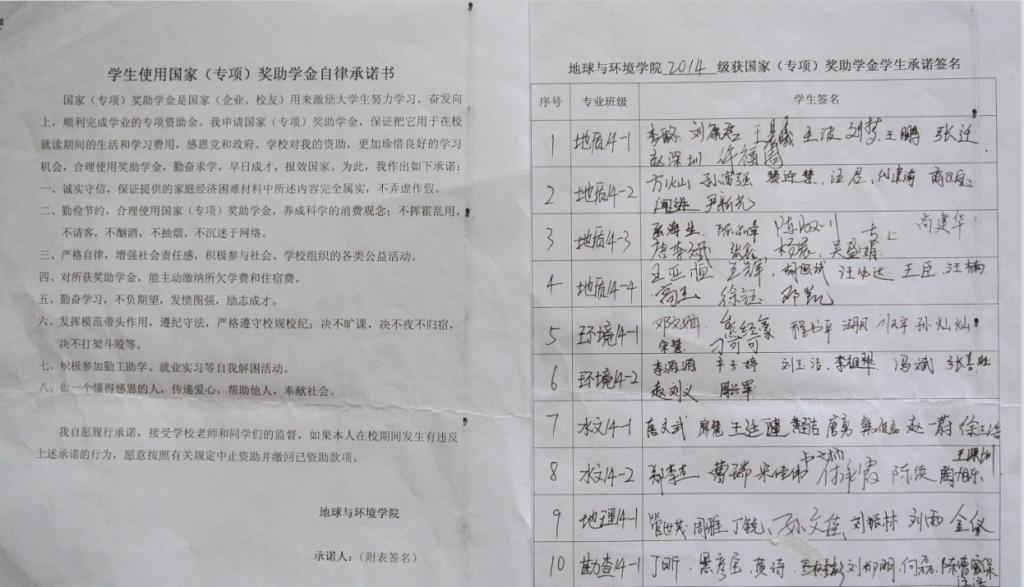 学生使用国家（专项）奖助学金自律承诺书
国家（专项）奖助学金是国家（企业、校友）用来激励大学生努力学习，奋发向
上，顺利完成学业的专项资助金。我申请国家（专项）奖助学金，保证把它用于在校
就读期间的生活和学习费用，感恩党和政府、学校对我的资助，更加珍惜良好的学习
机会，合理使用奖助学金，勤奋求学，早日成才，报效国家。为此，我作出如下承诺：
一、诚实守信，保证提供的家庭经济困难材料中所述内容完全属实，不弄虚作假。
二、勤俭节约，合理使用国家（专项）奖助学金，养成科学的消费观念；不挥霍乱用，
不请客，不酗酒，不抽烟，不沉迷于网络。
三、严格自律，增强社会责任感，积极参与社会、学校组织的各类公益活动。
四、对所获奖助学金，能主动缴纳所欠学费和住宿费。
五、勤奋学习，不负期望，发愤图强，励志成才。
六、发挥模范带头作用，遵纪守法，严格遵守校规校纪；决不旷课，决不夜不归宿，
决不打架斗殴等。
七、积极参加勤工助学、就业实习等自我解困活动。
八、做一个懂得感恩的人，传递爱心，帮助他人，奉献社会。
我自愿履行承诺，接受学校老师和同学们的监督，如果本人在校期间发生有违反
上述承诺的行为，愿意按照有关规定中止资助并缴回已资助款项。
地球与环境学院
承诺人：（附表签名）
地球与环境学院 2014 级获国家（专项）奖助学金学生承诺签名
序号 专业班级 学生签名
1 地质14-1 刘康君 王波 刘梦 王鹏 张迁
赵深圳 许福周
2 地质14-2 方火山 孙常强 汪忍
尹新光
3 地质14-3 尚建华
唐李斌 张鑫 杨宸 吴盛婧
4 地质14-4 王亚恒 王辉 王臣 汪楠
徐钰 邓凯
5 环境14-1 程书平 孙灿灿
宋慧 刁可可
6 环境14-2 李海源 刘玉洁 李祖琴 冯斌
赵刘义
7 水文14-1 唐文武 廖慧 唐勇 赵一蔚
8 水文14-2 郑李杰 曹瑞 宋佳伟 付承霞 陈俊 陶旭东
9 地理14-1 管世茂 周雅 丁锐 孙文佳 刘振林 刘雨 金仪
10 勘查14-1 丁昕 黄诗 何磊